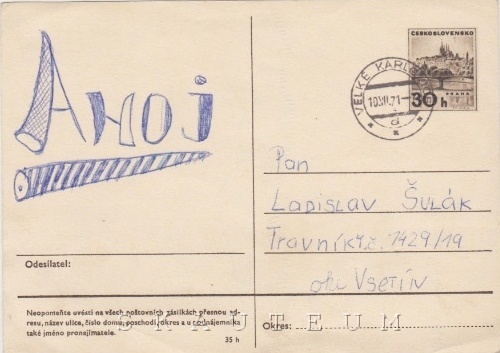 AHOJ
ČESKOSLOVENSKO
PRAHA
30 h
VELKÉ KARLO
a
Pan
Ladislav Šulák
Travníky č. 1429/19
okr Vsetín
Odesílatel:
Neopomeňte uvésti na všech poštovních zásilkách přesnou ad-
resu, název ulice, číslo domu, poschodí, okres a u podnájemníka
také jméno pronajímatele.
35 h
Okres:
SKAUTEUM